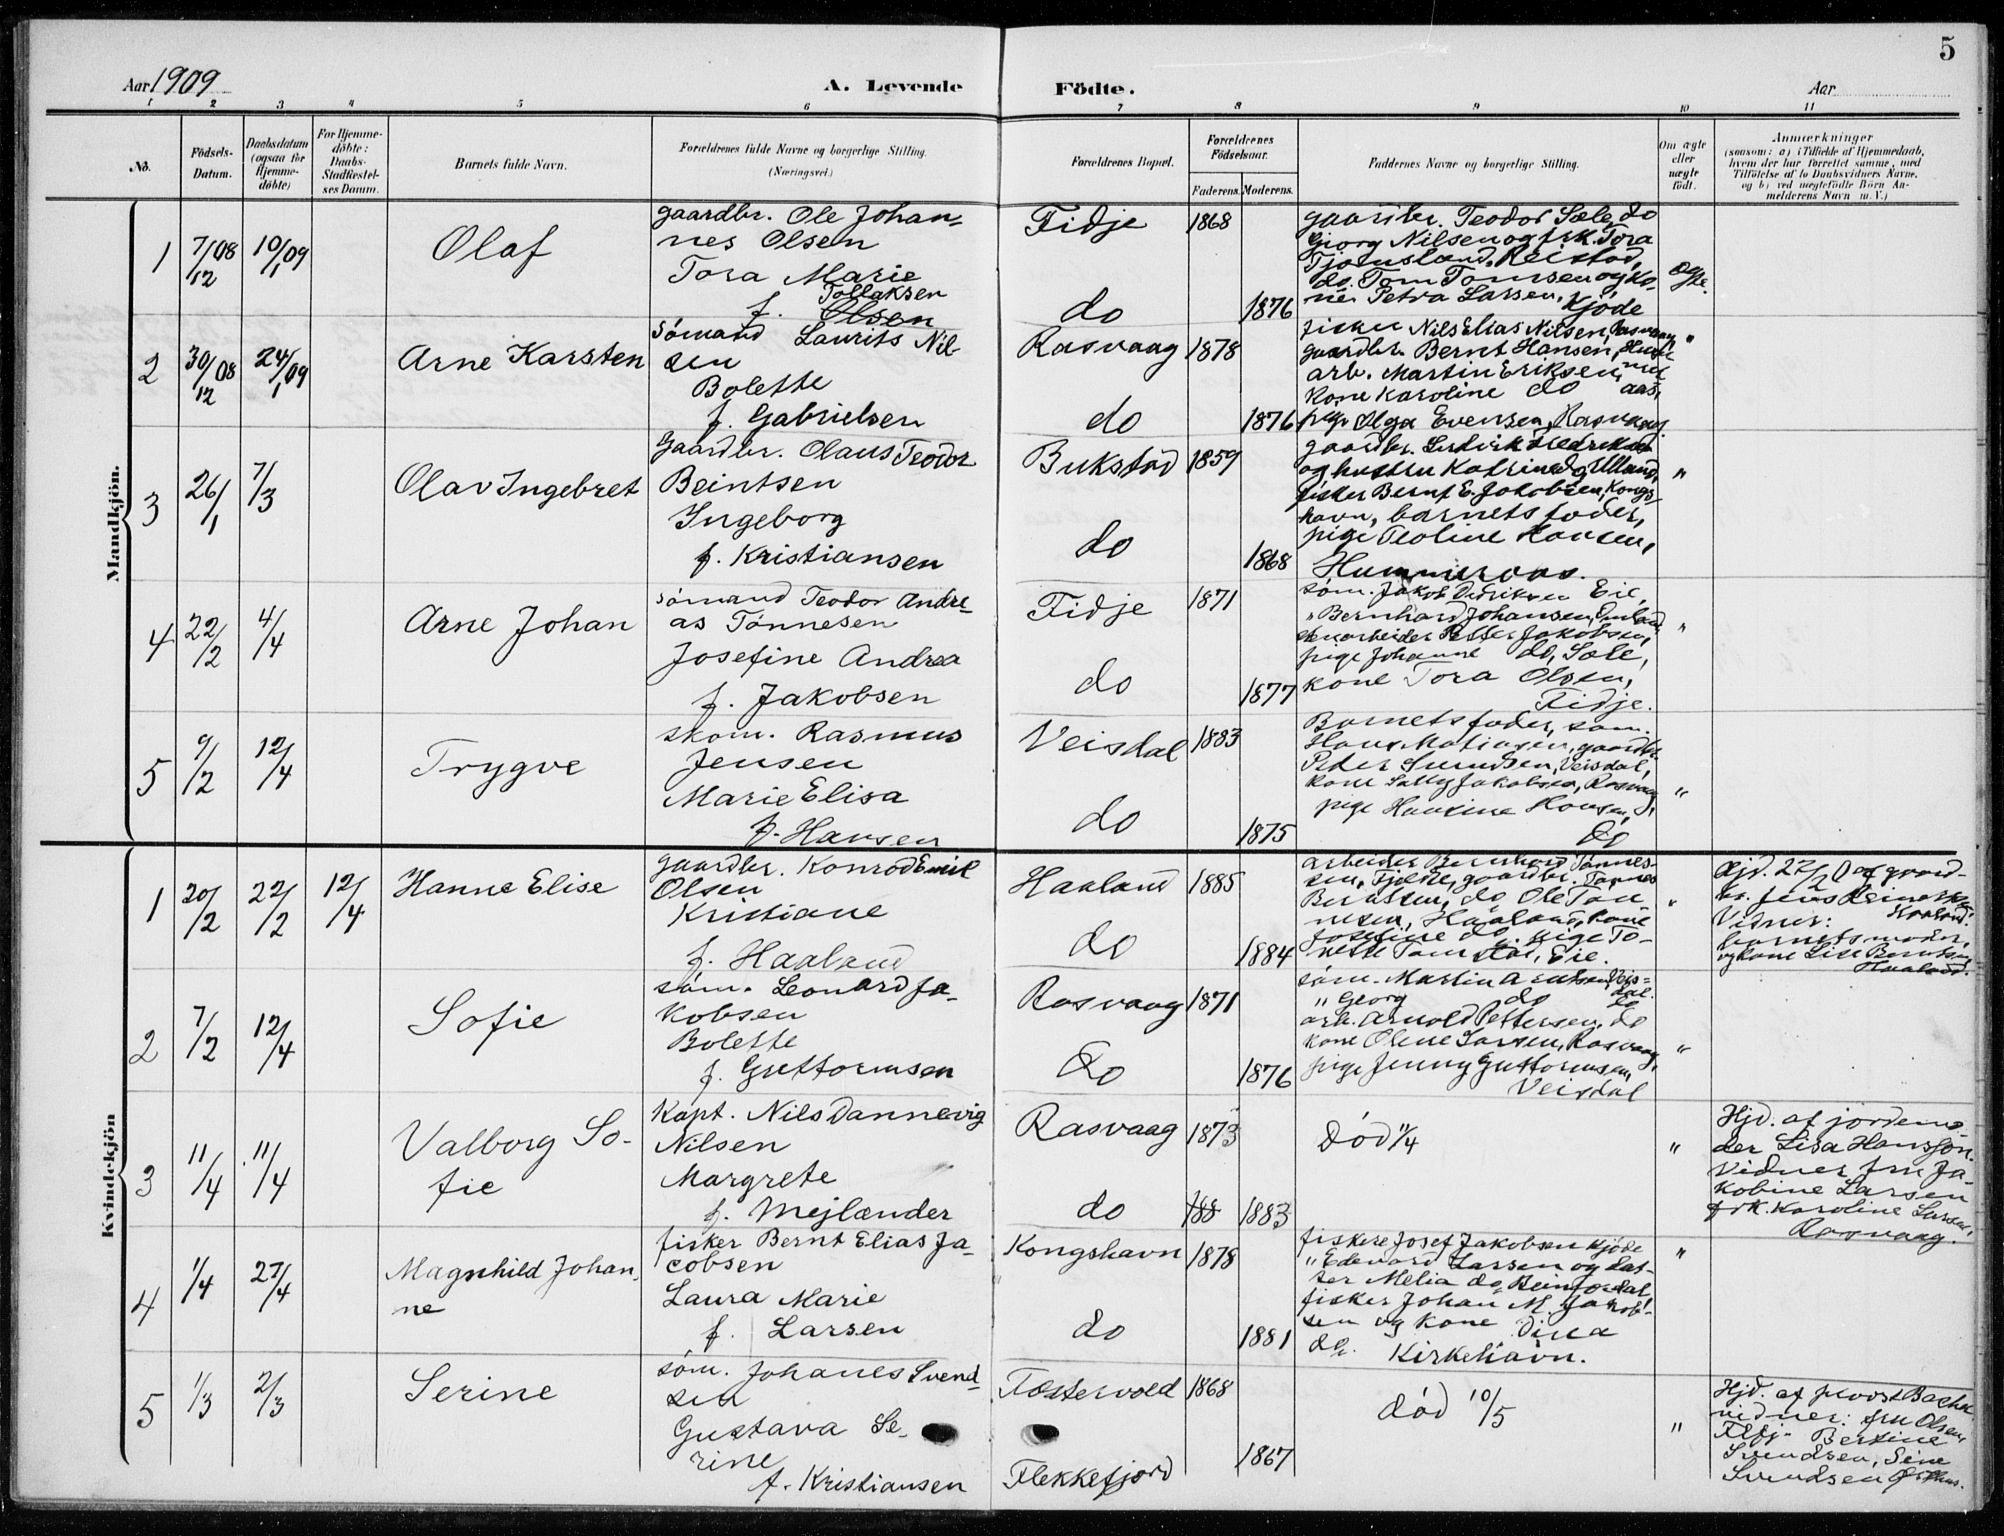 5
Aar 1909
A. Levende Födte.
Aar
1 2 3 4 5 6 7 8 9 10 11
No.
Födsels-Datum.
Daabsdatum (ogsaa for Hjemme-döbte)
For Hjemme-döbte: Daabs-Stadfæstel-ses Datum.
Barnets fulde Navn.
Forældrenes fulde Navne og borgerlige Stilling.
(Næringsvei.)
Forældrenes Bopæl.
Forældrenes Födselsaar.
Faderens. Moderens.
Faddernes Navne og borgerlige Stilling.
Om ægte eller uægte födt.
Anmærkninger
(saasom: a) i Tilfælde af Hjemmedaab,
hvem der har forrettet samme, med
Tilföielse af to Daabsvidners Navne.
og b) ved uægtefödte Börn An-
melderens Navn m. V.)
Mandkjön.
1 7/12 08 10/1 09 Olaf
gaardbr. Ole Johan-
nes Olsen
Tora Marie
Tollaksen
f. Olsen
Fidje 1868
do 1876
gaardbr. Teodor Sæle, do
Georg Nilsen og frk. Tora
Tjomsland, Reistad,
do. Tom Tomsen og ko-
ne Petra Larsen, Kjøde
Ægte.
2 30/12 08 24/1 09 Arne Karsten
Sømand Laurits Nil-
sen
Bolette
f. Gabrielsen
Rasvaag 1878
do 1876
fisker Nils Elias Nilsen, Rasvaag,
gaardbr. Bernt Hansen,
arb. Martin Eriksen,
kone Karoline do
pige Olga Evensen, Rasvaag
"
3 26/1 7/3 Olav Ingebret
Gaardbr. Olaus Teodor
Beintsen
Ingeborg
f. Kristiansen
Bukstad 1859
do 1868
gaardbr.
og hustru Katrine
fisker Bernt E. Jakobsen, Kongs-
havn, barnets fader,
pige Teoline Hansen,
Hummeraas.
"
4 22/2 4/4 Arne Johan
sømand Teodor Andre-
as Tønnesen
Josefine Andrea
f. Jakobsen
Fidje 1871
do 1877
søm. Jakob Eie,
" Bernhard Johansen,
stenarbeider Petter Jakobsen,
pige Johanne do, Sæle,
kone Tora Olsen,
Fidje.
"
5 9/2 12/4 Trygve
skom. Rasmus
Jensen
Marie Elisa
f. Hansen
Veisdal 1883
do 1875
Barnets fader, søm.
Hans Matiasen, gaardbr.
Peder Svendsen, Veisdal,
kone Sally Jakobsen, Rasvaag,
pige Hansine Hansen,
do
"
Kvindekjön
1 20/2 22/2 12/4 Hanne Elise
gaardbr. Konrad Emil
Olsen
Kristiane
f. Haaland
Haaland 1885
do 1884
arbeider Bernhard Tønnes-
sen, gaardbr. Tønnes
Berntsen, do Ole Tøn-
nesen, Haaland, kone
Josefine do. pige To-
nette Tomstad, Eie.
"
Hjd. 22/2 09 af gaard-
br. Jens
Haaland.
Vidner:
barnets moder,
og kone Lise Berntsen
Haaland.
2 7/2 12/4 Sofie
søm. Leonard Ja-
kobsen
Bolette
f. Guttormsen
Rasvaag 1871
do 1876
søm. Martin Veis-
dal.
" Georg do do
arb. Arnold Pettersen, do
kone Olene Larsen, Rasvaag,
pige Jenny Guttormsen,
Veisdal
"
3 11/4 11/4 Valborg So-
fie
Kapt. Nils Dannevig
Nilsen
Margrete
f. Mejlænder
Rasvaag 1873
do 188 1883
Død 11/4
"
Hjd. af jordemo-
der Lisa Hansson.
Vidner fru Ja-
kobine Larsen
frk. Karoline Larsen,
Rasvaag.
4 1/4 27/4 Magnhild Johan-
ne
fisker Bernt Elias Ja-
cobsen
Laura Marie
f. Larsen
Kongshavn 1878
do 1881
fiskere Josef Jakobsen Kjøde
" Edevard Larsen og dat-
ter Melia do,
fisker Johan M. Jakob-
sen og kone Dina
do. Kirkehavn.
"
5 1/3 2/3 Serine
søm. Johanes Svend-
sen
Gustava Se-
rine
f. Kristiansen
Fæstervold 1868
Flekkefjord 1867
død 10/5
"
Hjd. af provst Bache
vidner: fru Olsen,
Flfj. Bertine
Svendsen, Sine
Svendsen